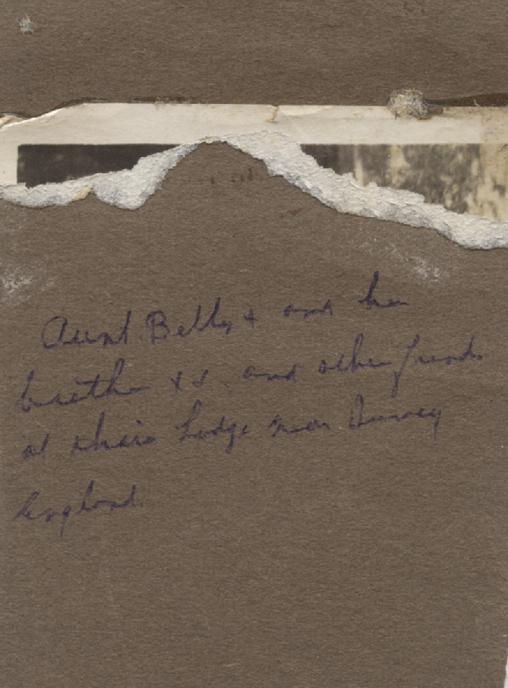 Aunt Betty & and her
brother and other friends
at their Lodge near Surrey
England.